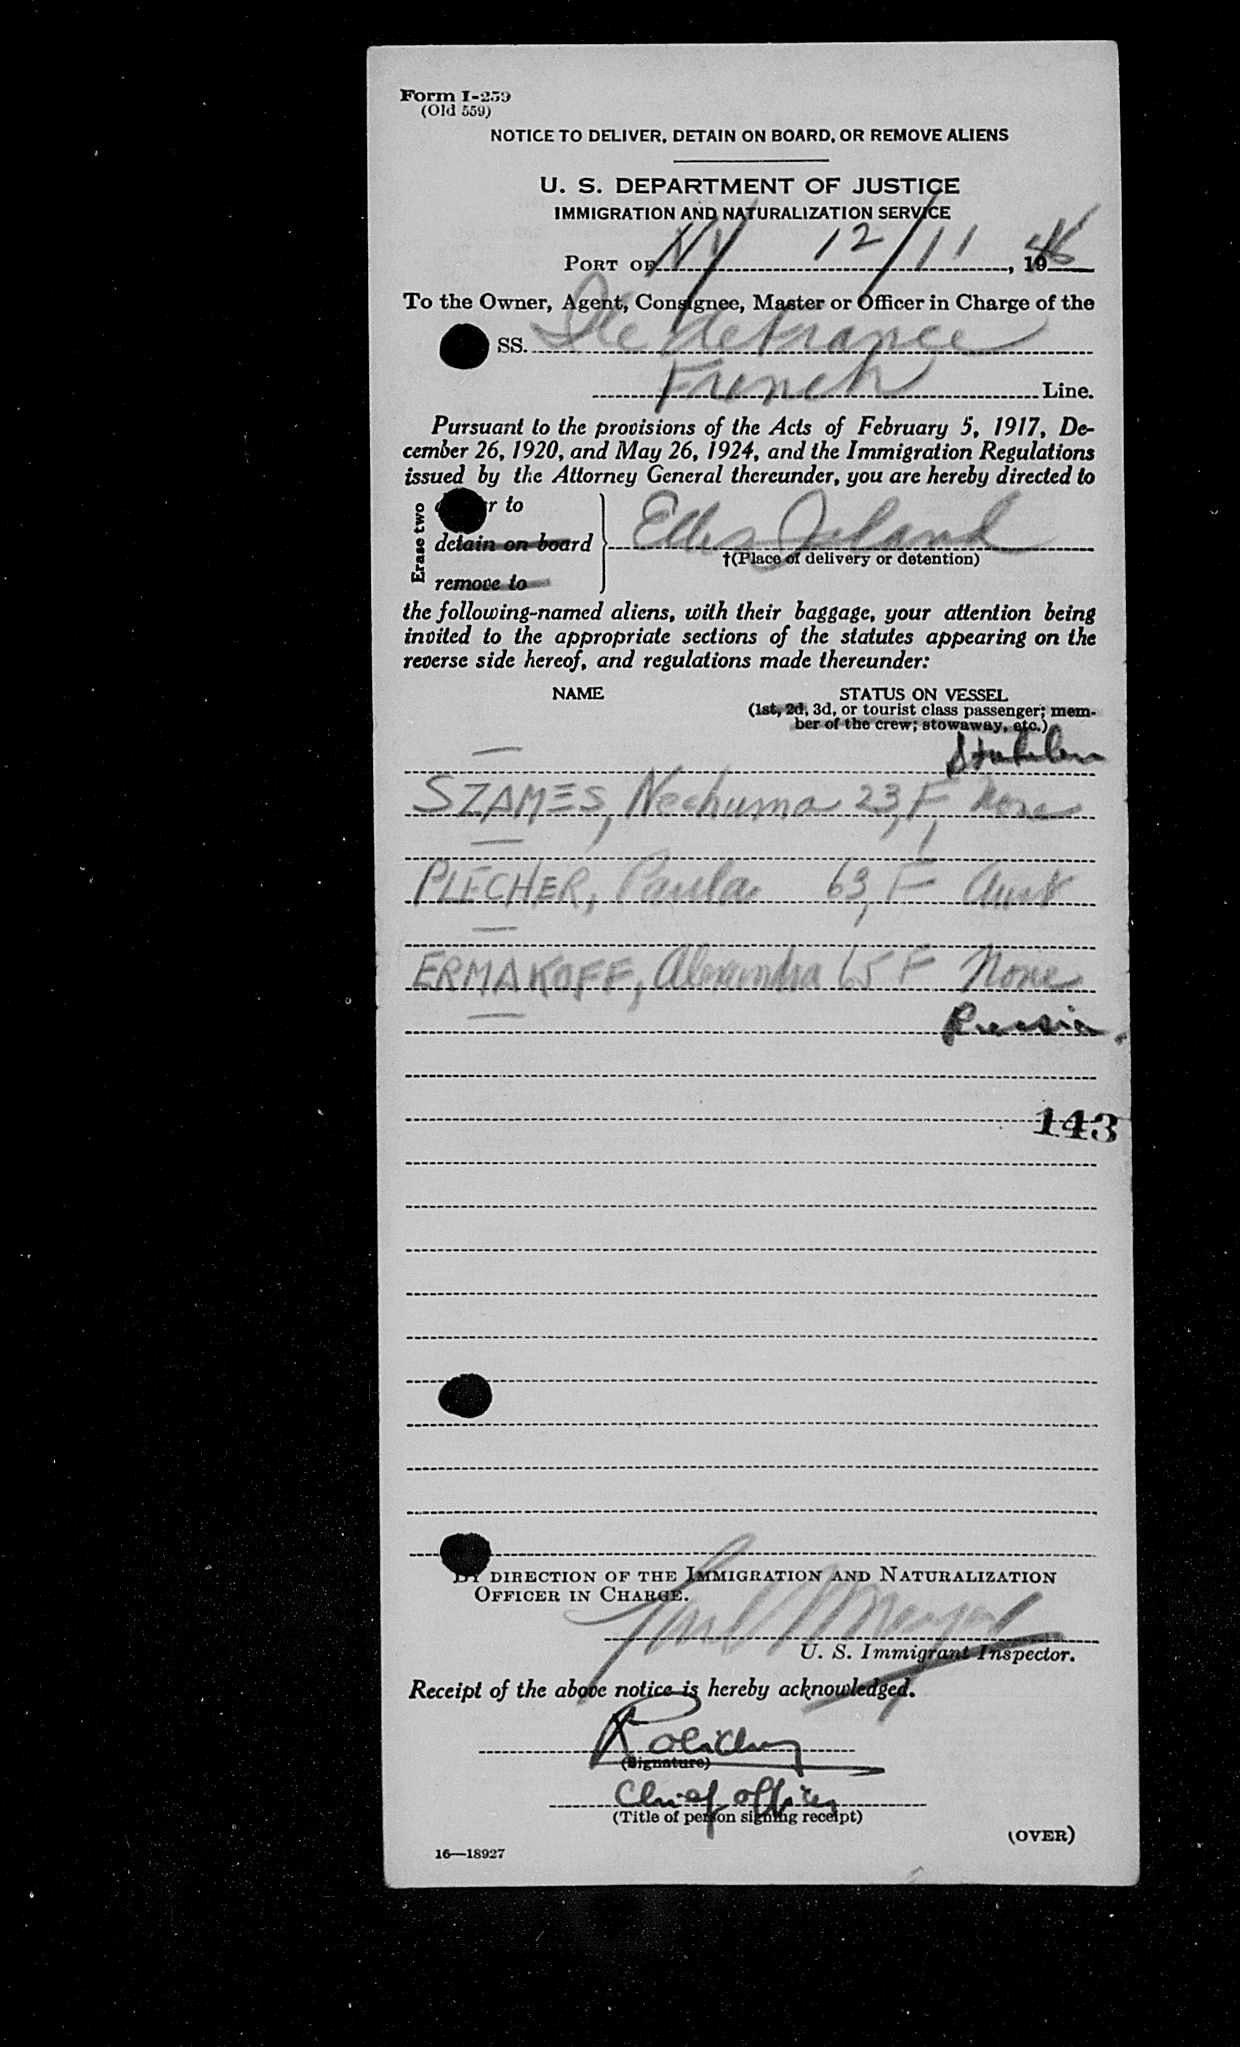 Form I-259
(Old 559)
NOTICE TO DELIVER, DETAIN ON BOARD, OR REMOVE ALIENS
U. S. DEPARTMENT OF JUSTICE
IMMIGRATION AND NATURALIZATION SERVICE
PORT OF NY 12/11, 1946
To the Owner, Agent, Consignee, Master or Officer in Charge of the
SS. Ile de France
French Line.
Pursuant to the provisions of the Acts of February 5, 1917, De-
cember 26, 1920, and May 26, 1924, and the Immigration Regulations
issued by the Attorney General thereunder, you are hereby directed to
Erase two
r to
detain on board
remove to
Ellis Island
†(Place of delivery or detention)
the following-named aliens, with their baggage, your attention being
invited to the appropriate sections of the statutes appearing on the
reverse side hereof, and regulations made thereunder:
NAME STATUS ON VESSEL
(1st, 2d, 3d, or tourist class passenger; mem-
ber of the crew; stowaway, etc.)
SZAMES, Nechuma 23, F, None
PLECHER, Paula 63, F
ERMAKOFF, Alexandra 65 F None
Russia.
143
BY DIRECTION OF THE IMMIGRATION AND NATURALIZATION
OFFICER IN CHARGE.
U. S. Immigrant Inspector.
Receipt of the above notice is hereby acknowledged.
(Signature)
Chief officer
(Title of person signing receipt)
(OVER)
16—18927